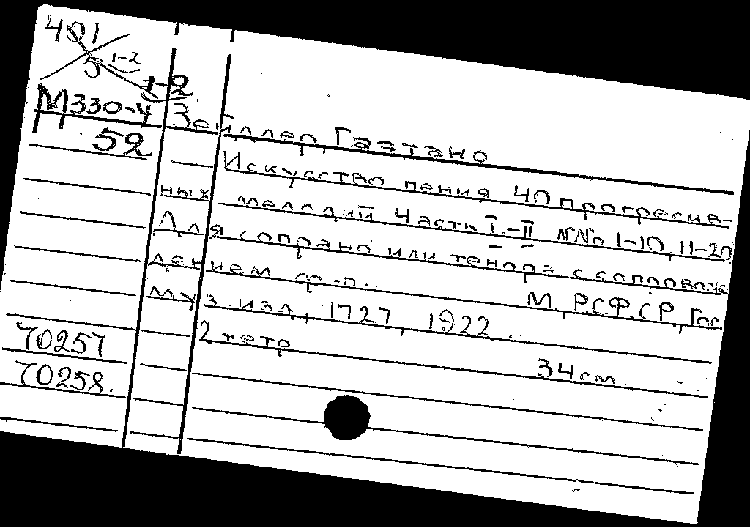 401
5 1-2
1-2
М330-4 Зейллер, Гаэтано
52
Искусство пения 40 прогрессив-
ных мелодий Часть I-II NNo 1-10, 11-20
Для сопрано или тенора с сопровож
дением ф.-п. М, РСФСР, Гос
муз. изд, 1727, 1922.
2 тетр 34 cm
70257
70258.